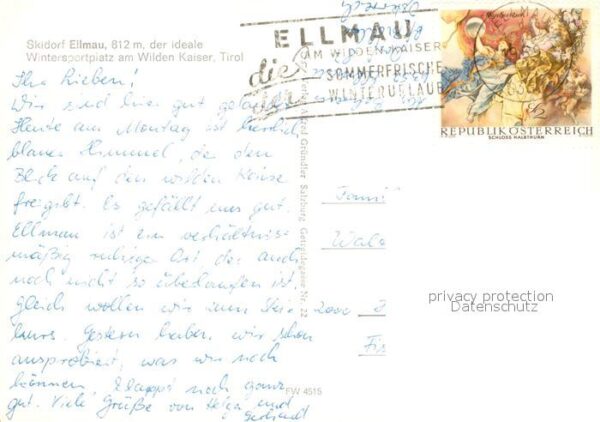 Skidorf Ellmau, 812 m, der ideale
Wintersportplatz am Wilden Kaiser, Tirol
ELLMAU
AM WILDEN KAISER
die
SOMMERFRISCHE
WINTERURLAUB
REPUBLIK ÖSTERREICH
SCHLOSS HALBTHURN
Ihr Lieben!
Wir sind hier gut gelandet.
Heute am Montag ist herrlich
blauer Himmel, der den
Blick auf den wilden Kaiser
freigibt. Es gefällt uns gut.
Ellmau ist ein verhältnis-
mäßig ruhiger Ort der auch
noch nicht so überlaufen ist.
Gleich wollen wir zum Ski-
kurs. Gestern haben wir schon
ausprobiert, was wir noch
können, klappt noch ganz
gut. Viele Grüße von Helga und
Gerhardt
Gründler Salzburg Getreidegasse Nr. 22
FW 4515
Fami
Wale
2000 H
Fis
privacy protection
Datenschutz